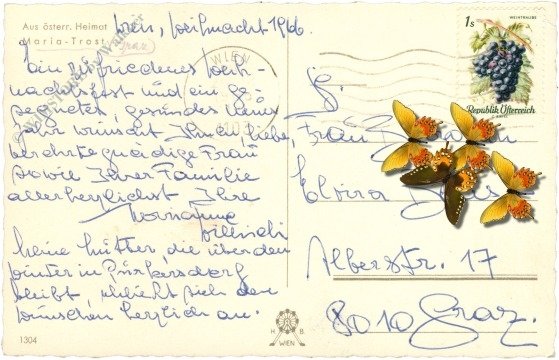 Aus österr. Heimat
Maria-Trost
Graz
Wien, Weihnacht 1966.
Ein zufriedenes Weih-
nachtsfest und ein ge-
segnetes, gesundes Neues
Jahr wünscht Ihnen, liebe,
verehrte gnädige Frau
sowie Ihrer Familie
allerherzlichst Ihre
Marianne
Meine Mutter, die über den
Winter in Purkersdorf
bleibt, schließt sich den
Wünschen herzlich an.
1304
H. B.
WIEN
WIEN
1s
WEINTRAUBE
Republik Österreich
Frau
Elvira
Alberstr. 17
8010 Graz.